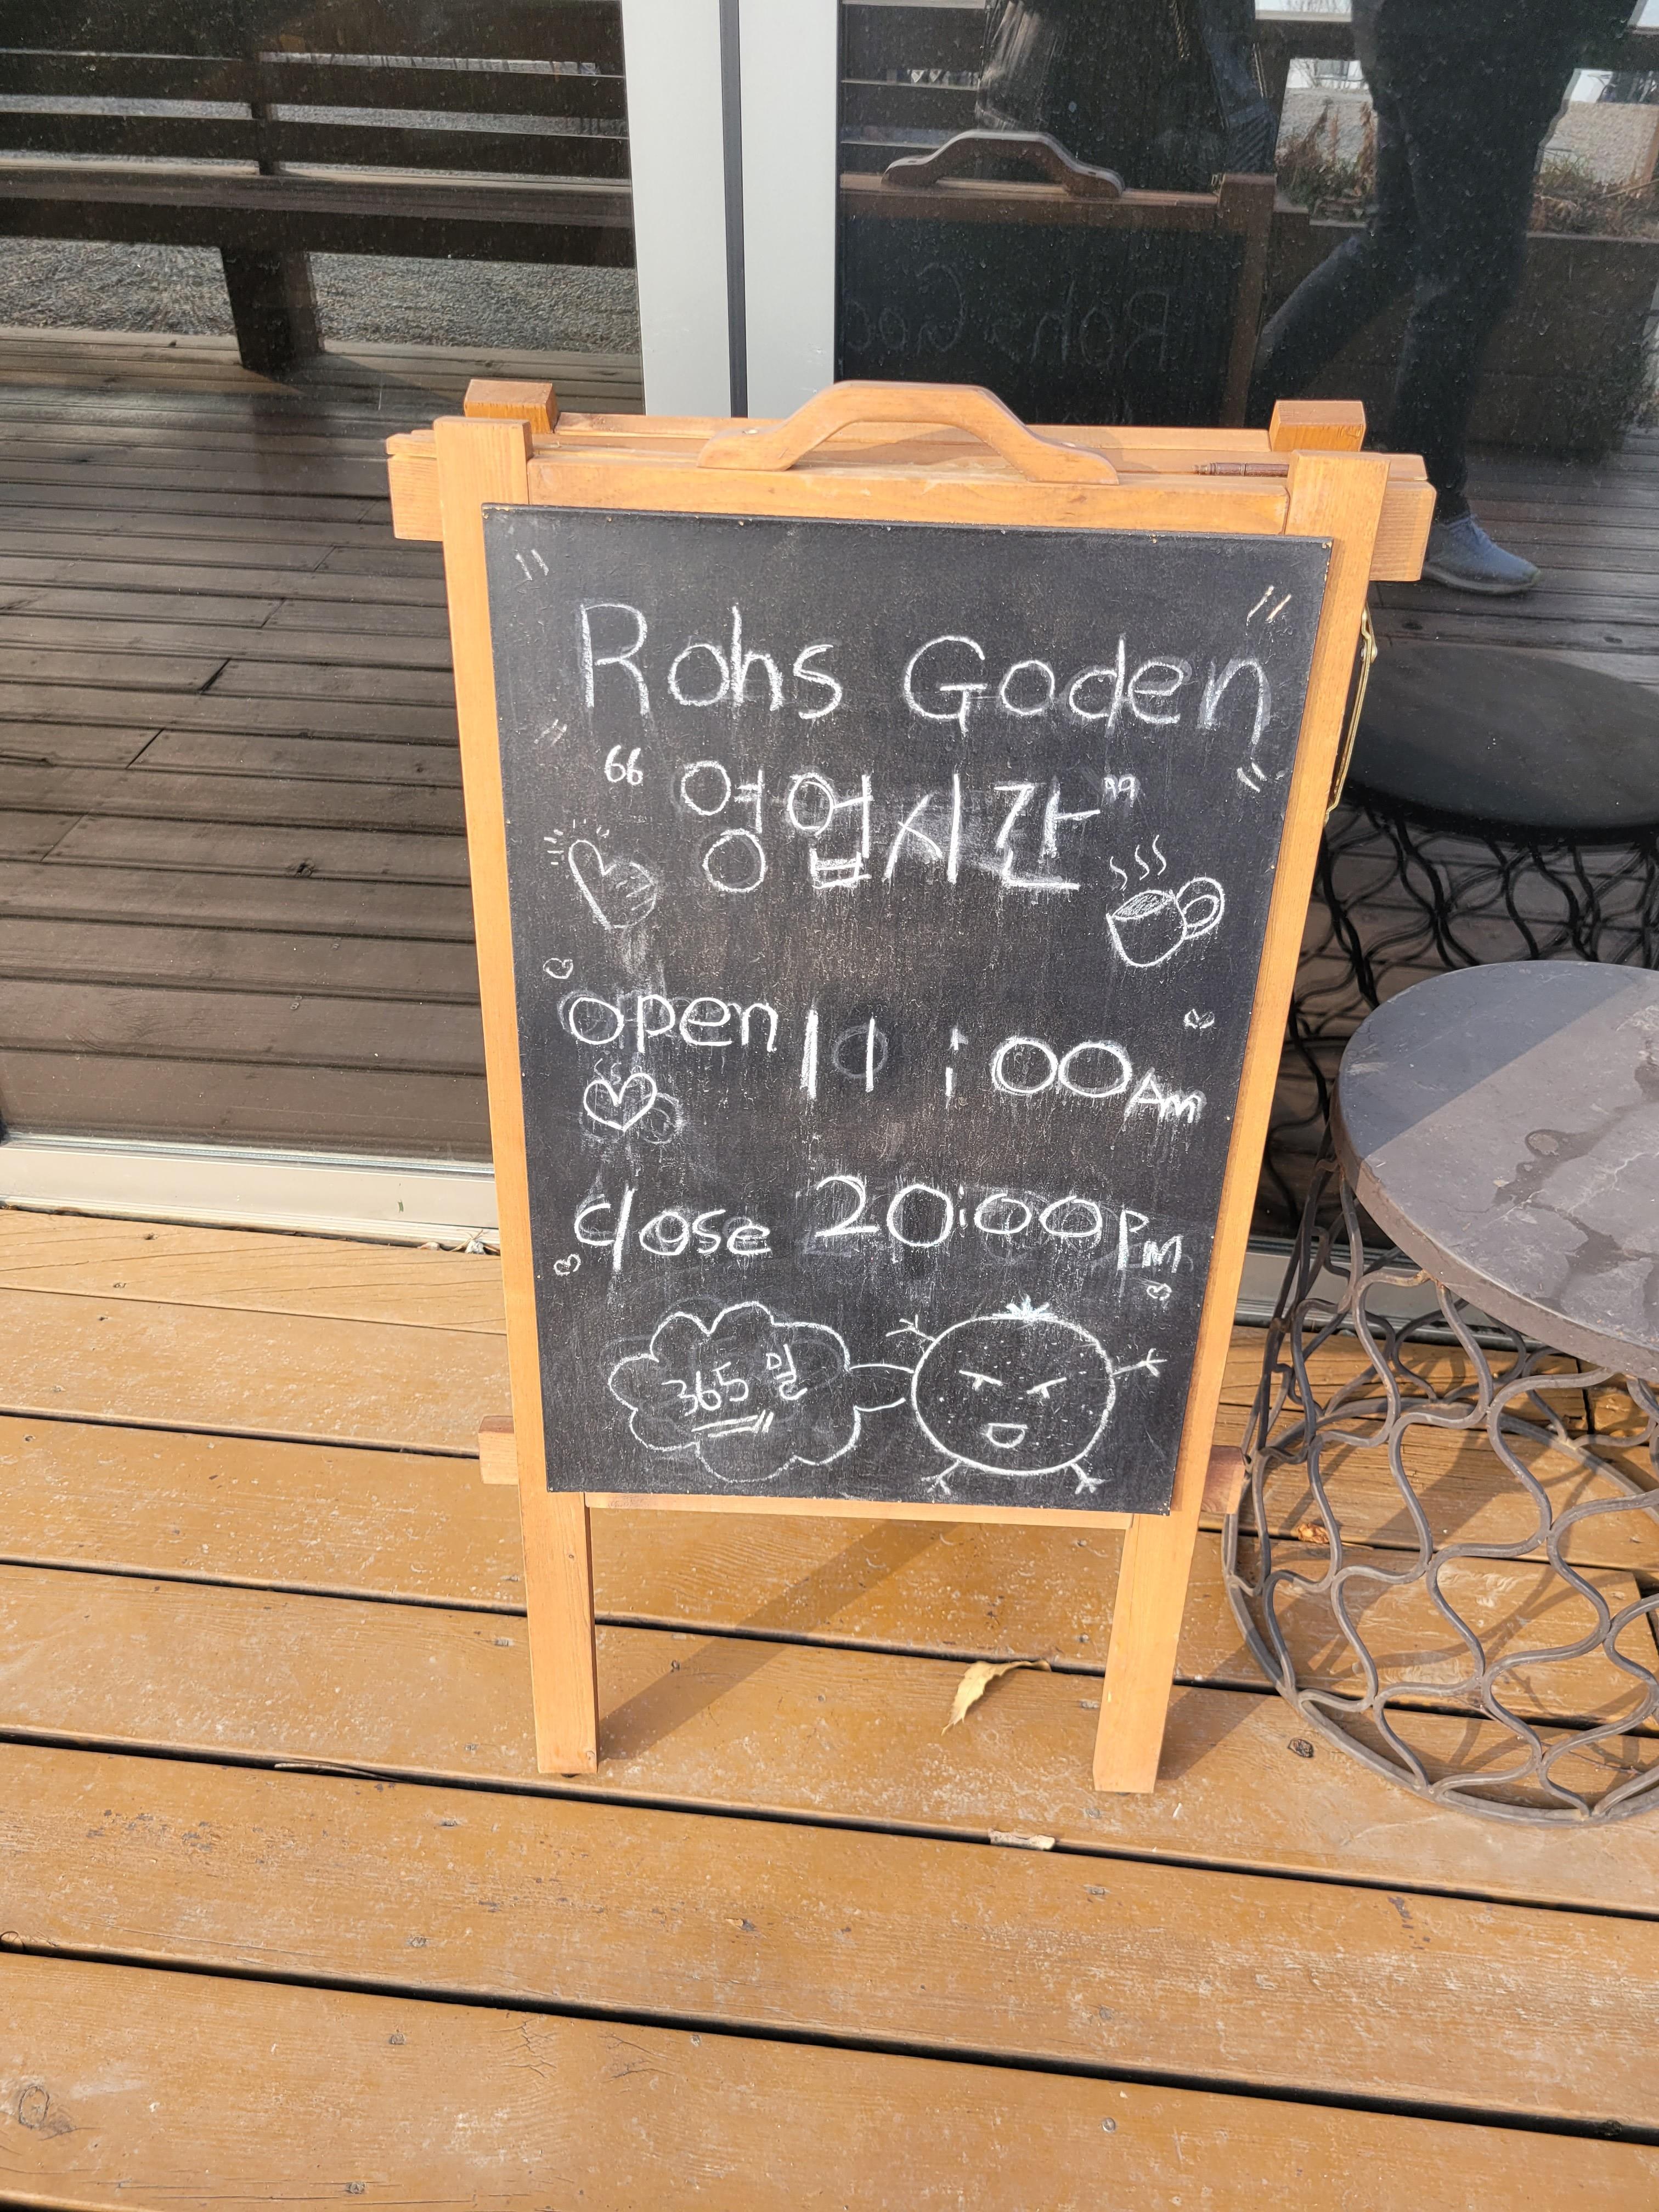 Rohs Goden
“영업시간”
open 11:00AM
close 20:00PM
365일